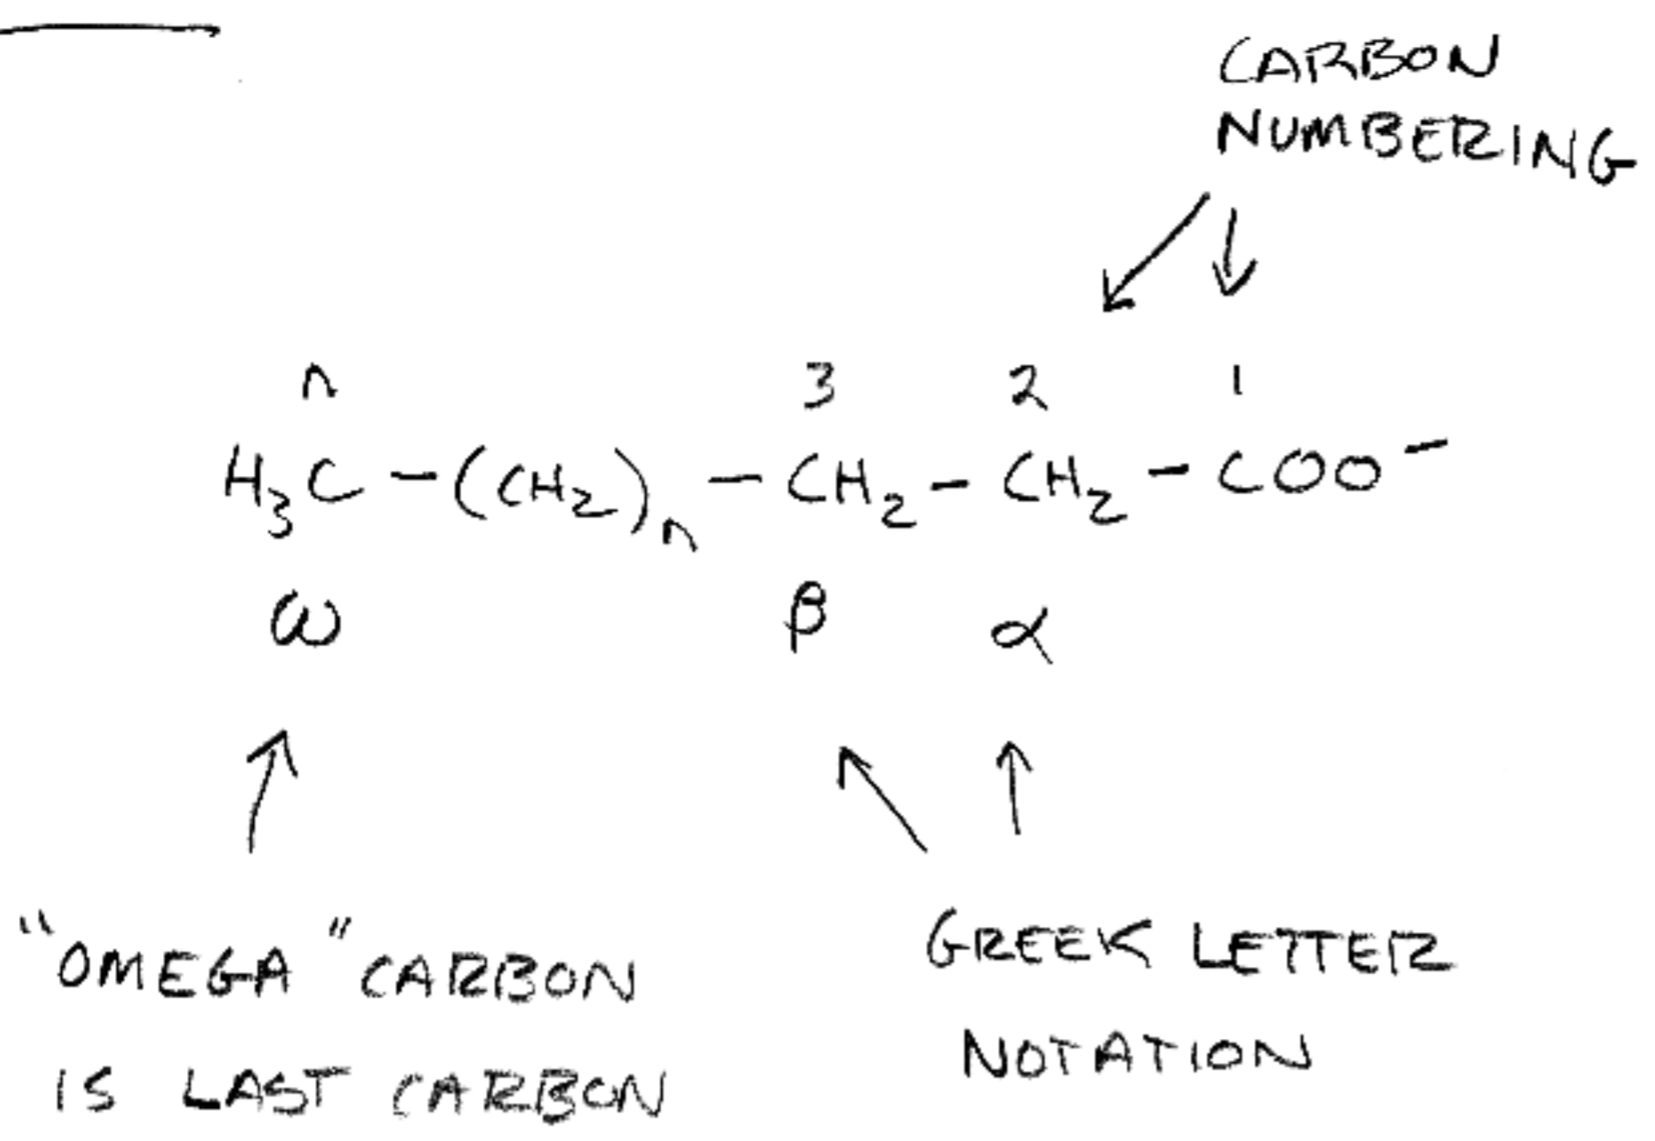 CARBON
NUMBERING
n 3 2 1
H₃C - (CH₂)ₙ - CH₂ - CH₂ - COO⁻
ω β α
"OMEGA" CARBON
IS LAST CARBON
GREEK LETTER
NOTATION